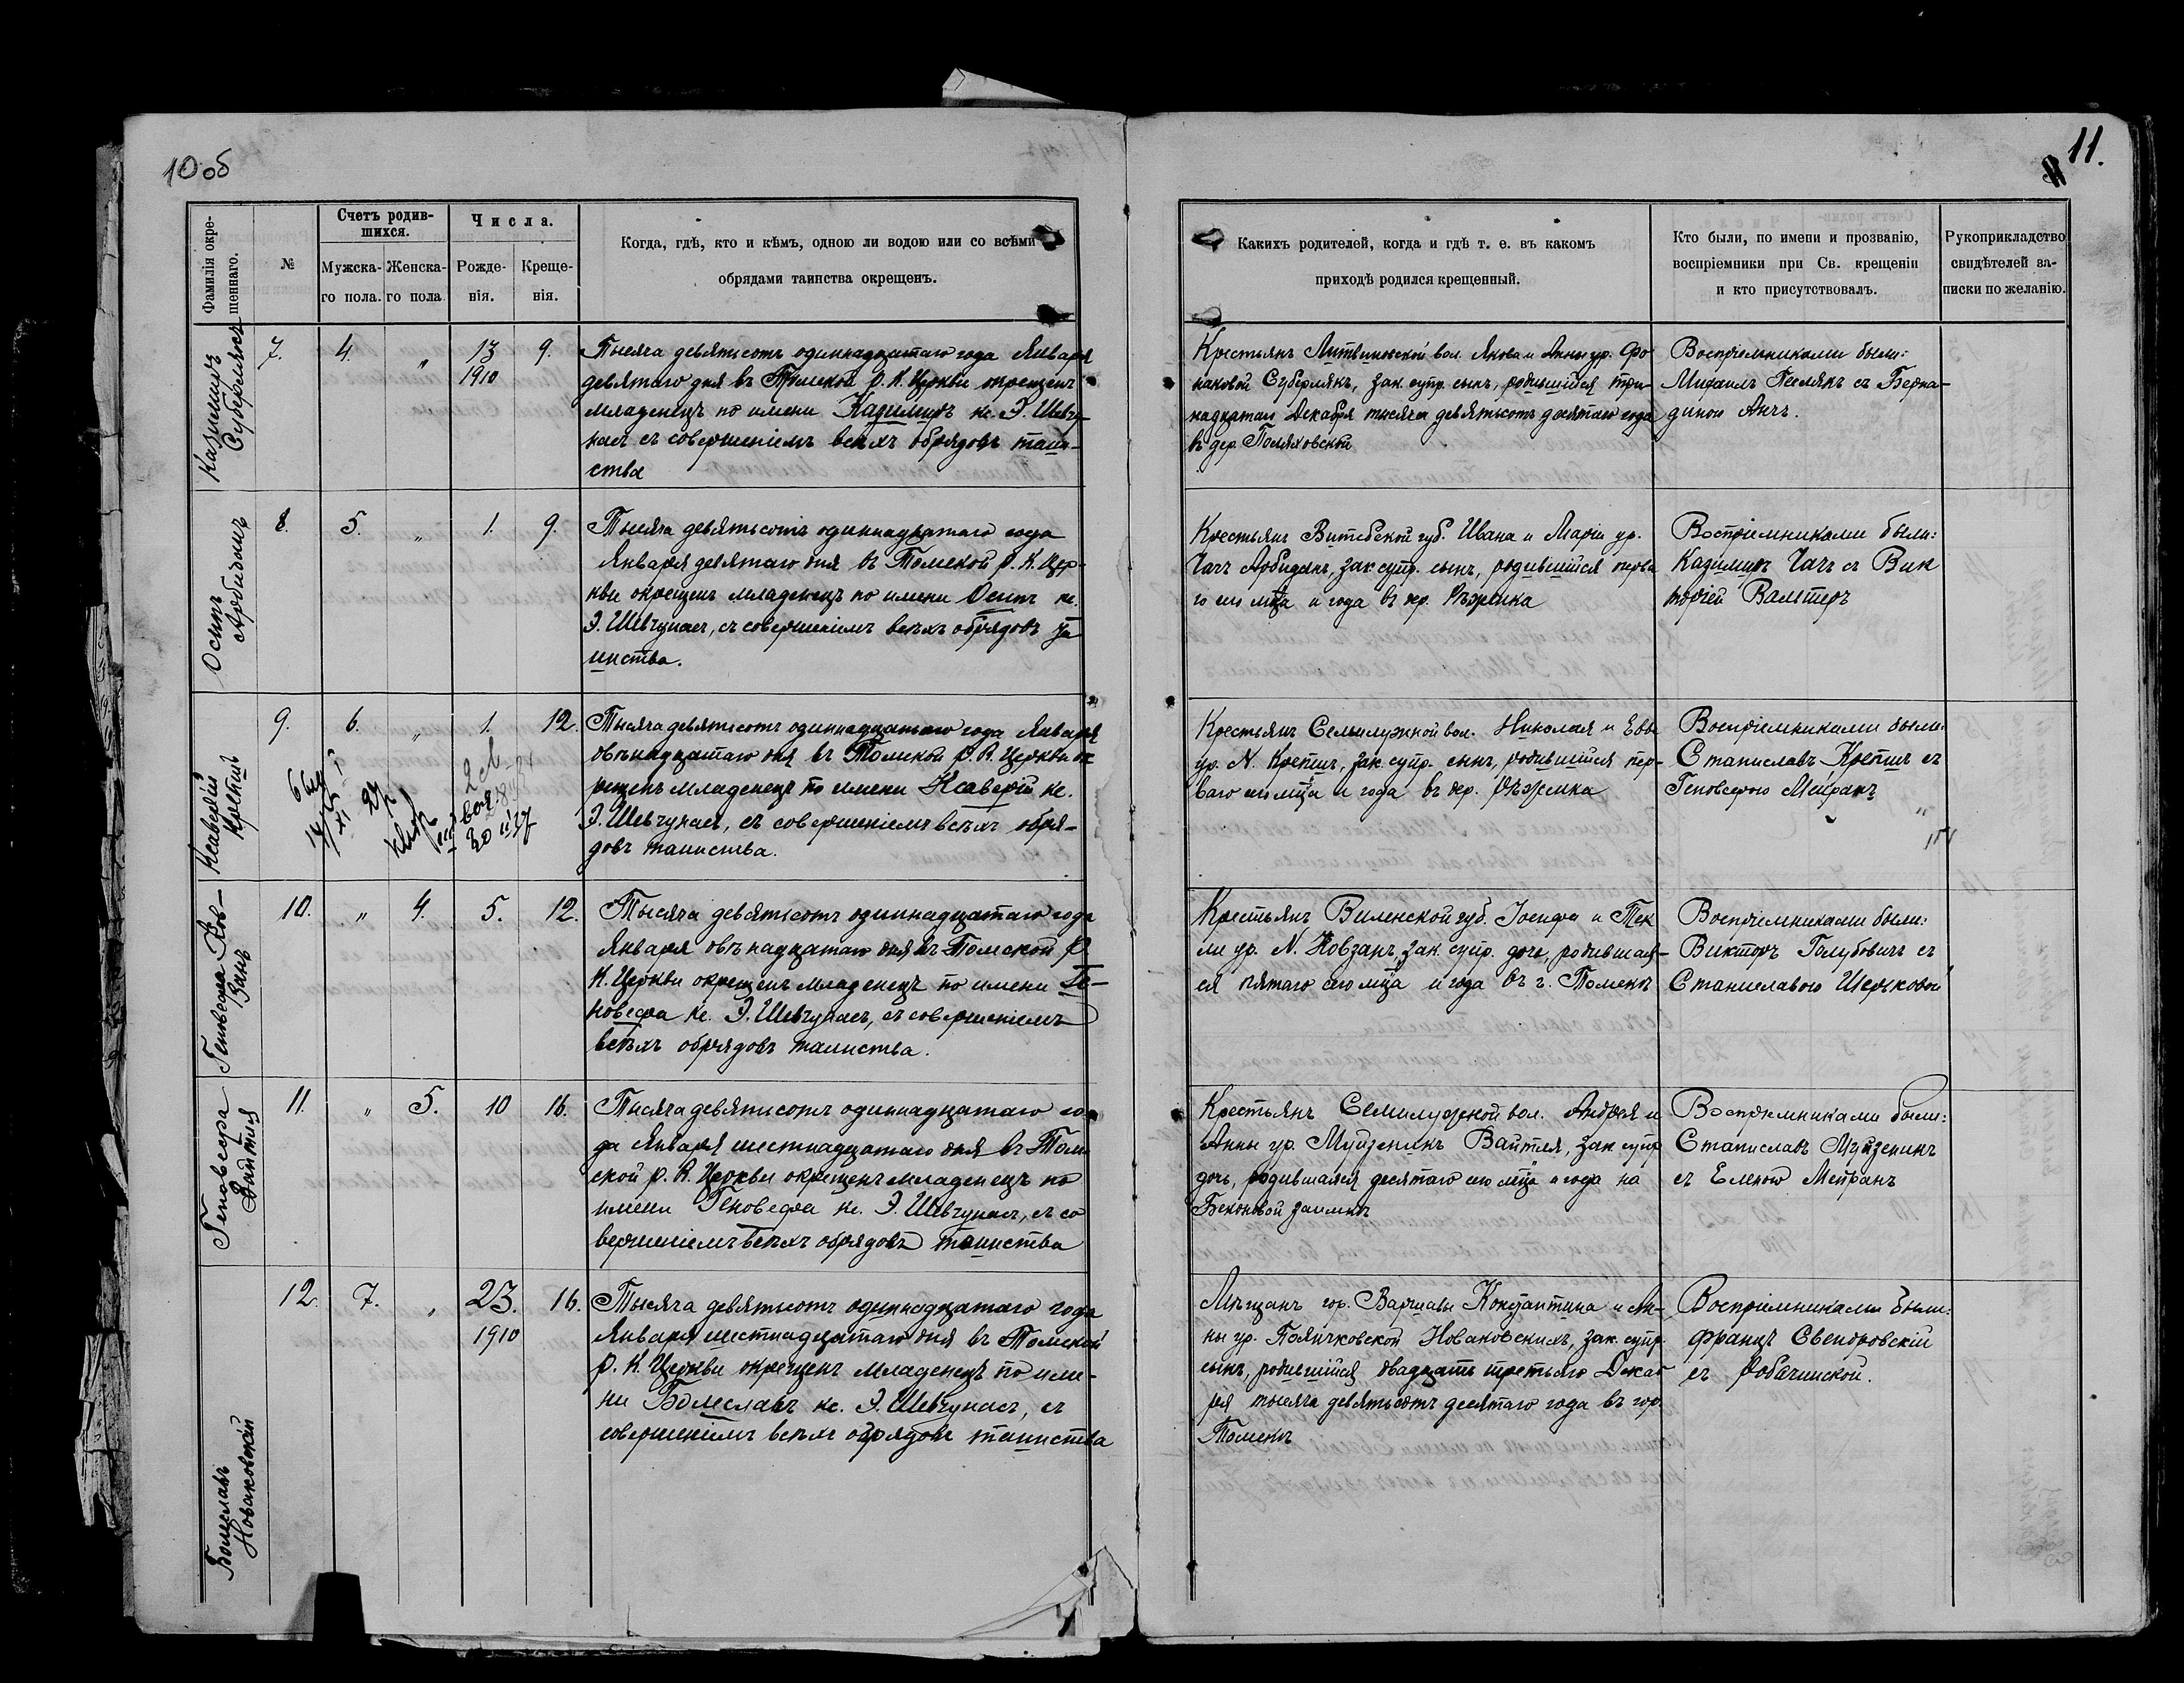 10 об
11.
Фамилія окре-
щеннаго.
№
Счетъ родив-
шихся.
Мужска-
го пола.
Женска-
го пола
Числа.
Рожде-
нія.
Креще-
нія.
Когда, гдѣ, кто и кѣмъ, одною ли водою или со всѣми
обрядами таинства окрещенъ.
Какихъ родителей, когда и гдѣ т. е. въ какомъ
приходѣ родился крещенный.
Кто были, по имени и прозванію,
воспріемники при Св. крещеніи
и кто присутствовалъ.
Рукоприкладство
свидѣтелей за-
писки по желанію.
Казимиръ
Суберлякъ
7.
4.
"
13
1910
9.
Тысяча девятьсотъ одиннадцатаго года Января
девятаго дня въ Томской Р. К. Церкви окрещенъ
младенецъ по имени Казимиръ кс. Э. Шевчу-
насъ съ совершеніемъ всѣхъ обрядовъ таин-
ства
Крестьянъ Литвиновской вол. Якова и Анны ур. Фо
каковой Суберлякъ, зак. супр. сынъ, родившійся три-
надцатаго Декабря тысяча девятьсотъ десятаго года
въ дер. Поляковской
Воспріемниками были:
Михаилъ Песлякъ съ Берна-
диною Анчъ.
Осипъ
Арбиданъ
8.
5.
"
1.
9.
Тысяча девятьсотъ одиннадцатаго года
Января девятаго дня въ Томской Р. К. Цер-
кви окрещенъ младенецъ по имени Осипъ кс.
Э. Шевчунасъ, съ совершеніемъ всѣхъ обрядовъ та
инства.
Крестьянъ Витебской губ. Ивана и Маріи ур.
Чачъ Арбиданъ, зак. супр. сынъ, родившійся перва
го сего мца и года въ дер. Рѣжика
Воспріемниками были:
Казимиръ Чачъ съ Вик
торіей Вальтеръ
Ксаверій
Крепшъ
9.
6.
"
1.
12.
Тысяча девятьсотъ одиннадцатаго года Января
двѣнадцатаго дня въ Томской Р. К. Церкви ок
рещенъ младенецъ по имени Ксаверій кс.
Э. Шевчунасъ, съ совершеніемъ всѣхъ обря-
довъ таинства.
Крестьянъ Семилужной вол. Николая и Евы
ур. N. Крепшъ, зак. супр. сынъ, родившійся пер-
ваго сего мца и года въ дер. Рѣжика
Воспріемниками были:
Станиславъ Крепшъ съ
Геновефою Мейранъ
Геновефа Нов-
занъ
10.
"
4.
5.
12.
Тысяча девятьсотъ одиннадцатаго года
Января двѣнадцатаго дня въ Томской Р.
К. Церкви окрещенъ младенецъ по имени Ге-
новефа кс. Э. Шевчунасъ, съ совершеніемъ
всѣхъ обрядовъ таинства.
Крестьянъ Виленской губ. Іосифа и Тек
ли ур. N. Новзанъ, зак. супр. дочь, родившая-
ся пятаго сего мца и года въ г. Томскѣ
Воспріемниками были:
Викторъ Голубовичъ съ
Станиславою
Геновефа
Вайтля
11.
"
5.
10
16.
Тысяча девятьсотъ одиннадцатаго го
да Января шестнадцатаго дня въ Том
ской Р. К. Церкви окрещенъ младенецъ по
имени Геновефа кс. Э. Шевчунасъ, съ со
вершеніемъ всѣхъ обрядовъ таинства
Крестьянъ Семилужной вол. Андрея и
Анны ур. Муйзеникъ Вайтля, зак. супр
дочь, родившаяся десятаго сего мца и года на
Бековой заимкѣ
Воспріемниками были:
Станиславъ Муйзеникъ
съ Еленою Мейранъ
Болеславъ
Новаковскій
12.
7.
"
23.
1910
16.
Тысяча девятьсотъ одиннадцатаго года
Января шестнадцатаго дня въ Томской
Р. К. Церкви окрещенъ младенецъ по име-
ни Болеславъ кс. Э. Шевчунасъ, съ
совершеніемъ всѣхъ обрядовъ таинства
Мѣщанъ гор. Варшавы Константина и Ан-
ны ур. Новаковскихъ, зак. супр.
сынъ, родившійся двадцать третьяго Декаб
ря тысяча девятьсотъ десятаго года въ гор.
Томскѣ
Воспріемниками были:
Францъ
съ Робачинской.